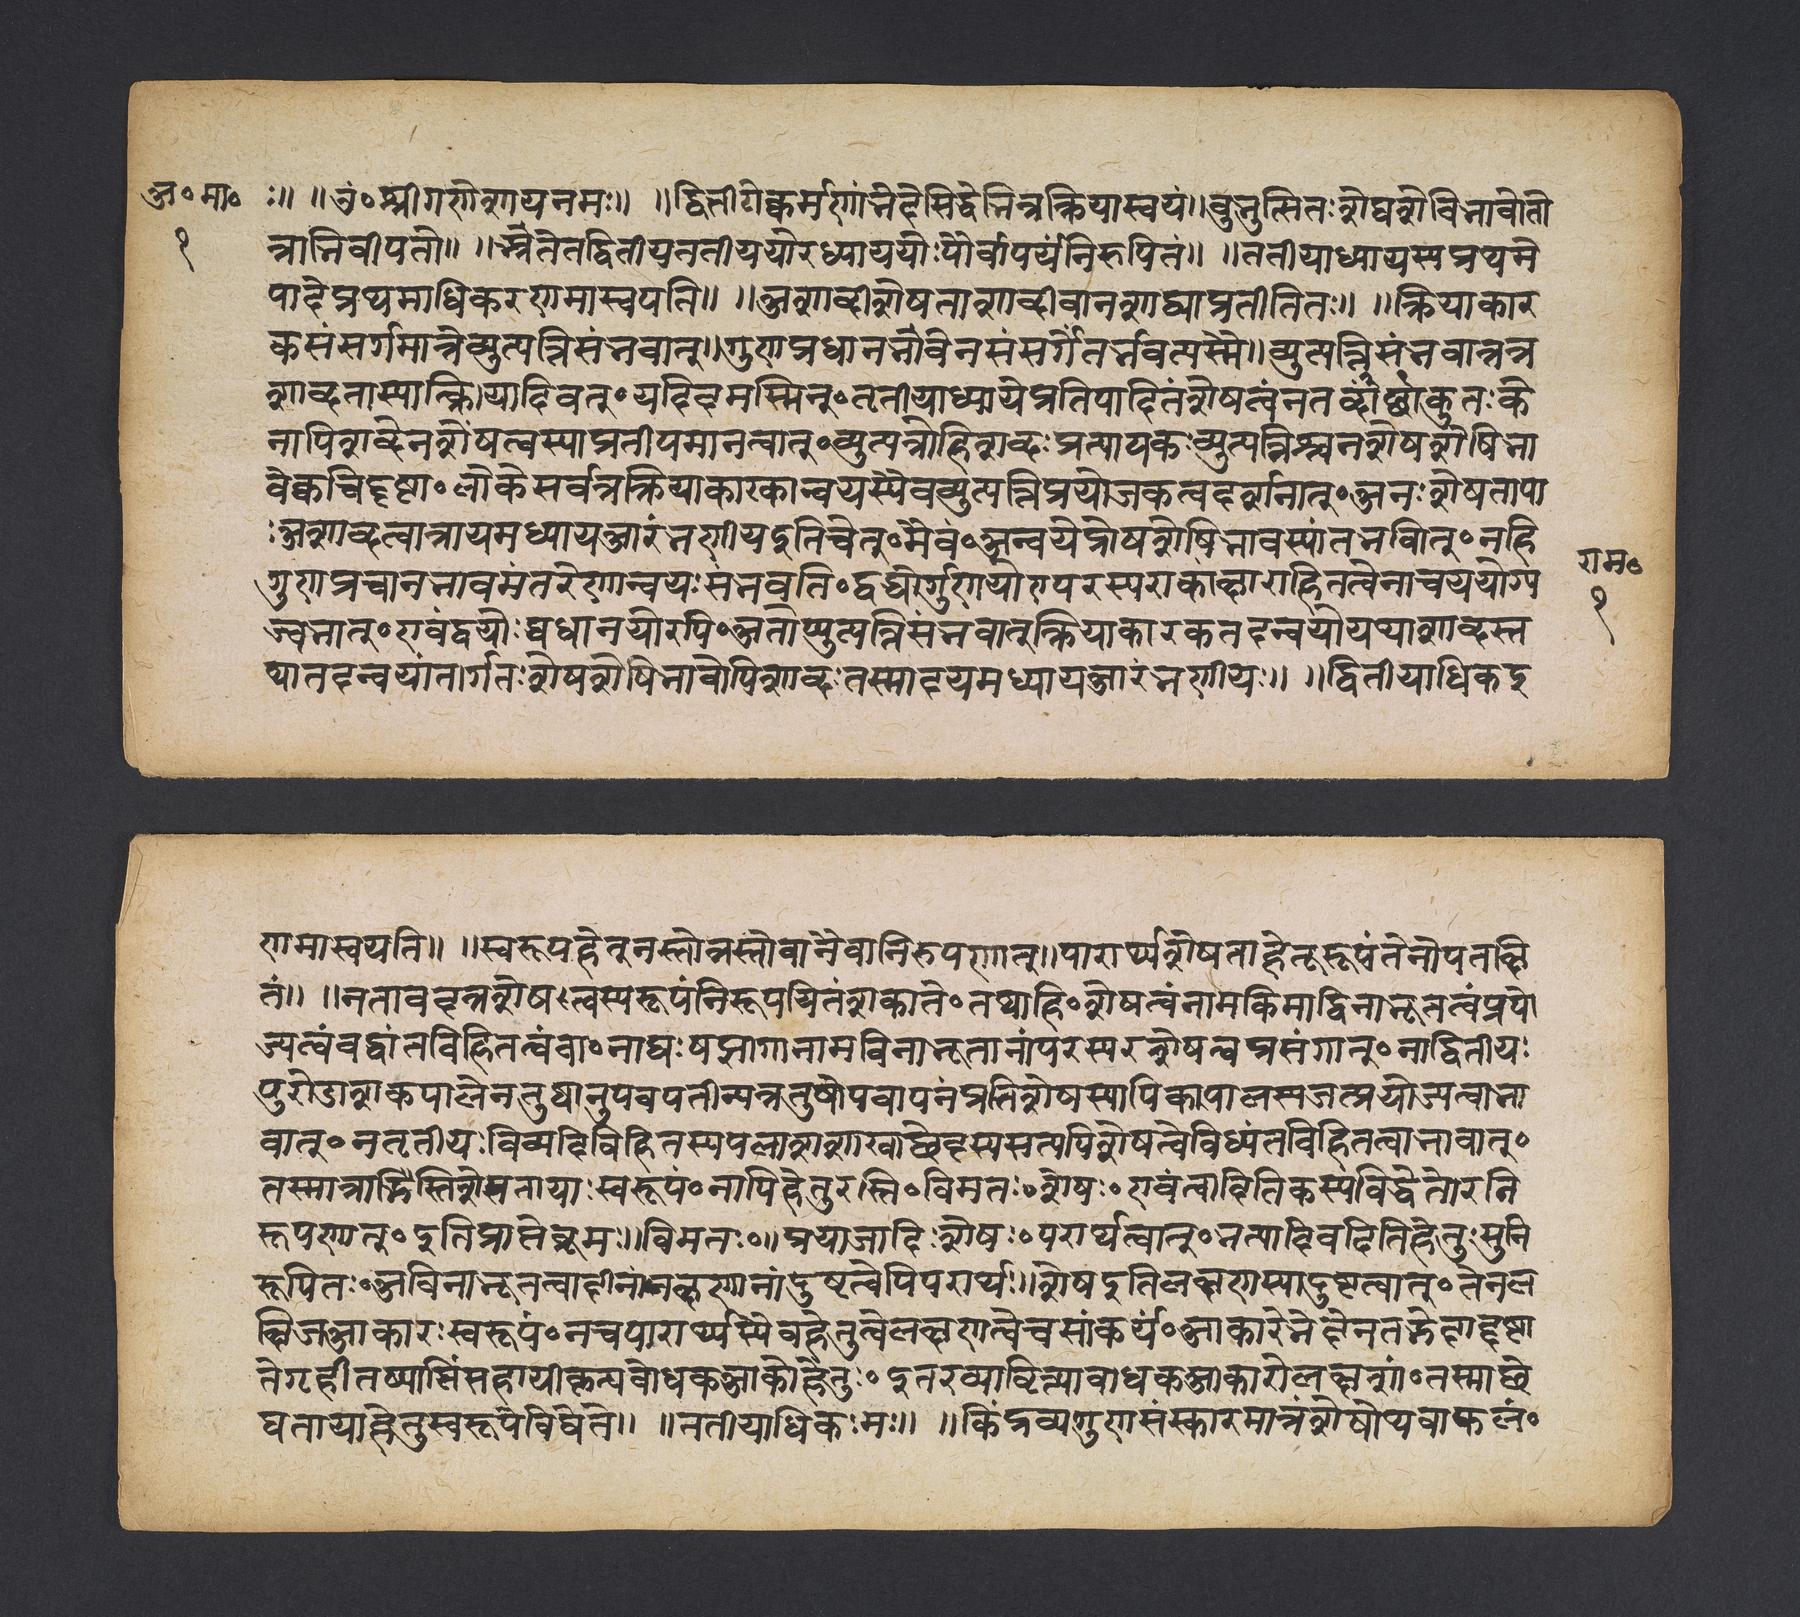 अ॰मा॰
१
ः॥ ॥ॐ॰श्रीगणेशायनमः॥ ॥द्वितीयेकर्मणांभेदेसिद्वेभिन्नक्रियास्वयं॥बुभुत्सितःशेषशेषिभावोतो
त्राभिधीयतो॥ ॥अनेनतद्वितीयतृतीययोरध्याययोःपौर्वापर्यंनिरुपितं॥ ॥ततीयाध्यायस्यप्रथमे
पादेप्रथमाधिकरणमास्चयति॥ ॥अशाब्दीशेषताशाब्दीवानशाब्द्याप्रतीतितः॥ ॥क्रियाकार
कसंसर्गमात्रेव्युत्पत्तिसंभवात्॥गुणप्रधानभावेनसंसर्गेतर्भवत्यस्मै॥व्युत्पत्तिसंभवात्तत्र
शाब्दतास्यात्क्रियादिवत्॰यदिदमस्मिन्॰तृतीयाध्यायेप्रतिपादितंशेषत्वंनतच्छाब्दंकुतःके
नापिशब्देनशेषत्वस्याप्रतीयमानत्वात्॰व्युत्पन्नोहिशब्दःप्रत्यायकःव्युत्पत्तिश्चनशेषशेषिभा
वेक्वचिद्दृष्टा॰लोकेसर्वत्रक्रियाकारकान्वयस्यैवव्युत्पत्तिप्रयोजकत्वदर्शनात्॰अतःशेषताया
ःअशाब्दत्वान्नायमध्यायआरंभणीयइतिचेत्॰मैवं॰अन्वयेशेषशेषिभावस्यांतर्भावात्॰नहि
गुणप्रधानभावमंतरेणान्वयःसंभवति॰द्वयोर्गुणयोःपरस्पराकांक्षाराहितत्वेनान्वययोग्य
त्वाभावात्॰एवंद्वयोःप्रधानयोरपि॰अतोव्युत्पत्तिसंभवात्क्रियाकारकतदन्वयोयथाशाब्दस्त
थातदन्वयांतर्गतःशेषशेषिभावोपिशाब्दःतस्मादयमध्यायआरंभणीयः॥ ॥द्वितीयाधिकर
राम॰
१
णमास्चयति॥ ॥स्वरूपहेतूनस्तोत्रस्तोवानैवानिरुपणात्॥पारार्थ्यशेषताहेतूरूपंतेनोपलक्षि
तं॥ ॥नतावदत्रशेषत्वस्यरूपंनिरूपयितंशक्यते॰तथाहि॰शेषत्वंनामकिमाविनाभूतत्वंप्रयो
ज्यत्वंवद्वांतविहितत्वंवा॰नाद्यःषड्यागानामविनाभूतानांपरस्परशेषत्वप्रसंगात्॰नाद्वितीयः
पुरोडाशकपालेनतुषानुपवपतीत्यत्रतुषोपवापनंप्रतिशेषस्यापिकापालस्यजत्प्रयोज्यत्वाभा
वात्॰नतृतीयःविध्यदिविहितस्यपलाशशाखाछेदस्यसत्यपिशेषत्वेविध्यंतविहितत्वाभावात्॰
तस्मान्नास्तिशेषतायाःस्वरूपं॰नापिहेतुरस्ति॰विमतः॰शेषः॰एवंत्वादितिकस्यचिद्धेतोरनि
रूपणात्॰इतिप्राप्तेब्रूमः॥विमतः॰॥प्रयाजादिःशेषः॰परार्थत्वात्॰भृत्यादिवदितिहेतुःसुनि
रूपितः॰अविनाभूतत्वादीनांलक्षणानांदुष्टत्वेपिपरार्थः॥शेषइतिलक्षणस्यादुष्टत्वात्॰तेनल
क्षितआकारःस्वरूपं॰नचपारार्थ्यस्यैवहेतुत्वेलक्षणत्वेचसांकर्यं॰आकारभेदेनतद्भेदादृष्टा
तेगृहीतव्याप्तिंसहायीकृत्यबोधकआकारोहेतुः॰इतरव्यावृत्त्यावोधकआकारोलक्षणं॰तस्माछे
षतायाहेतुस्वरूपेविद्येते॥ ॥तृतीयाधिकःमः॥ ॥किंद्रव्यगुणसंस्कारमात्रंशेषोथवाफलं॰